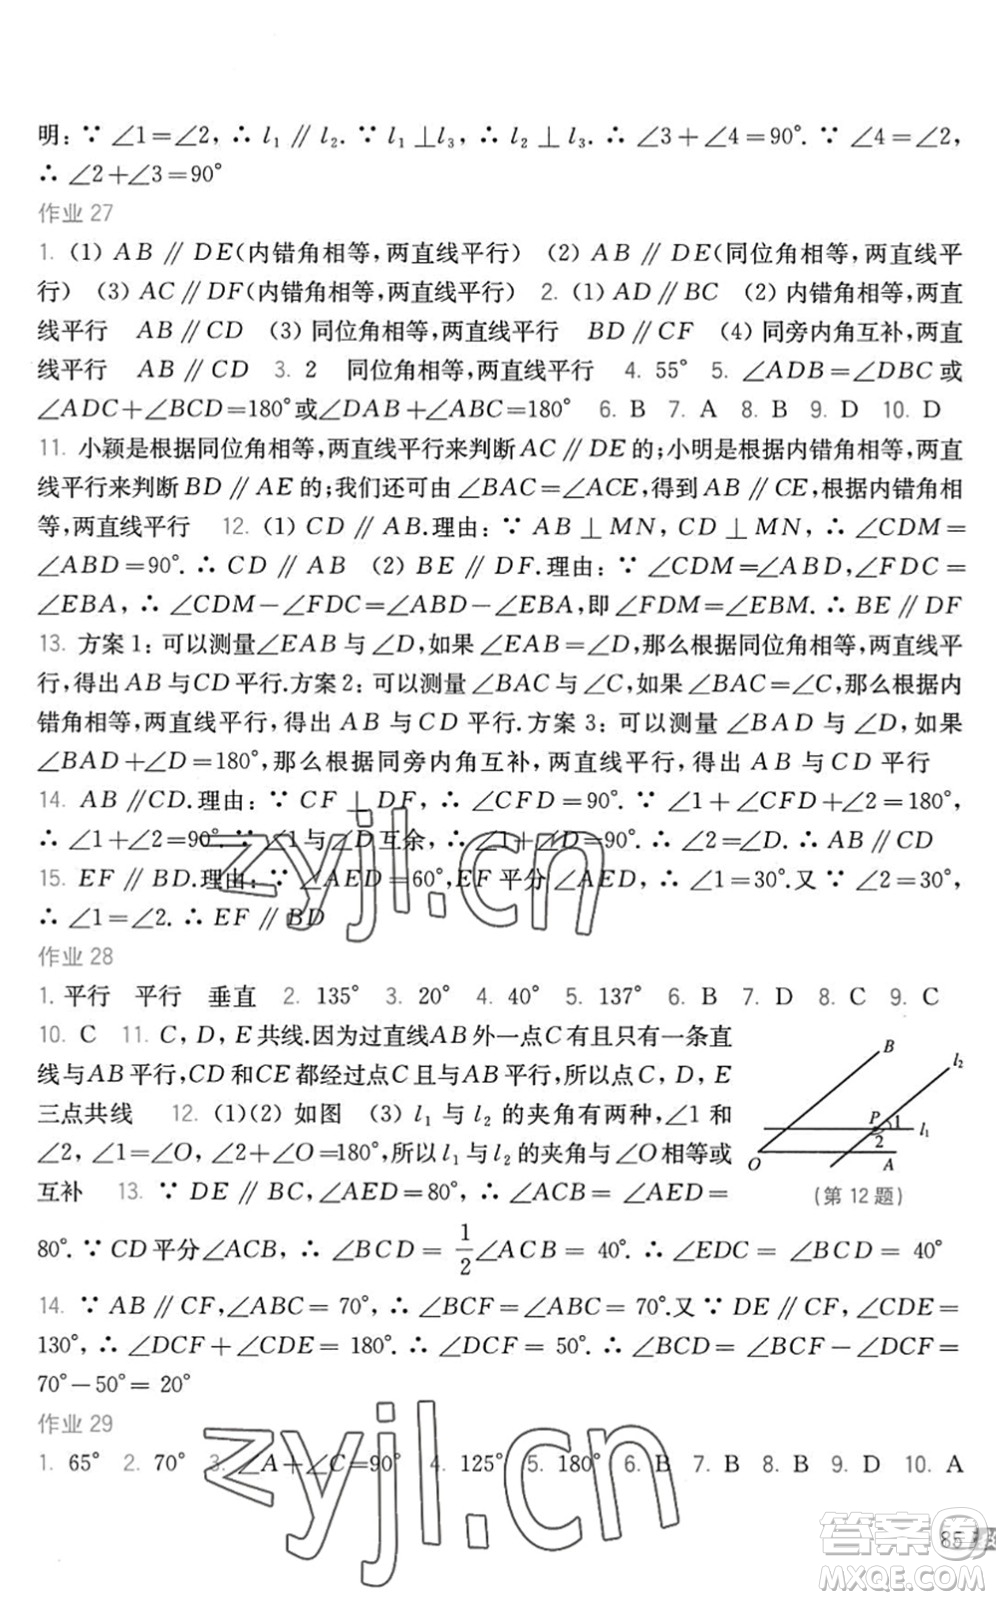 明：∵ ∠1=∠2，∴ l₁ ∥ l₂. ∵ l₁ ⊥l₃，∴ l₂ ⊥ l₃. ∴ ∠3+∠4=90°. ∵ ∠4=∠2，
∴ ∠2+∠3=90°
作业 27
1. (1) AB ∥ DE(内错角相等，两直线平行) (2) AB ∥ DE(同位角相等，两直线平
行) (3) AC∥DF(内错角相等，两直线平行) 2. (1) AD∥BC (2) 内错角相等，两直
线平行 AB∥CD (3) 同位角相等，两直线平行 BD∥CF (4) 同旁内角互补，两直
线平行 AB∥CD 3. 2 同位角相等，两直线平行 4. 55° 5. ∠ADB=∠DBC或
∠ADC+∠BCD=180°或∠DAB+∠ABC=180° 6. B 7. A 8. B 9. D 10. D
11. 小颖是根据同位角相等，两直线平行来判断AC∥DE的；小明是根据内错角相等，两直
线平行来判断BD∥AE的；我们还可由∠BAC=∠ACE，得到AB∥CE，根据内错角相
等，两直线平行 12. (1) CD∥AB.理由：∵ AB⊥MN，CD⊥MN，∴ ∠CDM=
∠ABD=90°. ∴ CD∥AB (2) BE∥DF.理由：∵ ∠CDM=∠ABD，∠FDC=
∠EBA，∴ ∠CDM-∠FDC=∠ABD-∠EBA，即∠FDM=∠EBM. ∴ BE∥DF
13. 方案1：可以测量∠EAB与∠D，如果∠EAB=∠D，那么根据同位角相等，两直线平
行，得出AB与CD平行.方案2：可以测量∠BAC与∠C，如果∠BAC=∠C，那么根据内
错角相等，两直线平行，得出AB与CD平行.方案3：可以测量∠BAD与∠D，如果
∠BAD+∠D=180°，那么根据同旁内角互补，两直线平行，得出AB与CD平行
14. AB∥CD.理由：∵ CF⊥DF，∴ ∠CFD=90°. ∵ ∠1+∠CFD+∠2=180°，
∴ ∠1+∠2=90°. ∵ ∠1与∠D互余，∴ ∠1+∠D=90°. ∴ ∠2=∠D. ∴ AB∥CD
15. EF∥BD.理由：∵ ∠AED=60°，EF平分∠AED，∴ ∠1=30°.又∵ ∠2=30°，
∴ ∠1=∠2. ∴ EF∥BD
作业 28
1. 平行 平行 垂直 2. 135° 3. 20° 4. 40° 5. 137° 6. B 7. D 8. C 9. C
10. C 11. C，D，E共线.因为过直线AB外一点C有且只有一条直
线与AB平行，CD和CE都经过点C且与AB平行，所以点C，D，E
三点共线 12. (1)(2) 如图 (3) l₁与l₂的夹角有两种，∠1和
∠2，∠1=∠O，∠2+∠O=180°，所以l₁与l₂的夹角与∠O相等或
互补 13. ∵ DE∥BC，∠AED=80°，∴ ∠ACB=∠AED=
B
l₂
P
1
2
l₁
O
A
(第12题)
80°. ∵ CD平分∠ACB，∴ ∠BCD=1/2∠ACB=40°. ∴ ∠EDC=∠BCD=40°
14. ∵ AB∥CF，∠ABC=70°，∴ ∠BCF=∠ABC=70°.又∵ DE∥CF，∠CDE=
130°，∴ ∠DCF+∠CDE=180°. ∴ ∠DCF=50°. ∴ ∠BCD=∠BCF-∠DCF=
70°-50°=20°
作业 29
1. 65° 2. 70° 3. ∠A+∠C=90° 4. 125° 5. 180° 6. B 7. B 8. B 9. D 10. A
85
zyjl.cn
zyjl.cn
答案卷
MXQE.COM